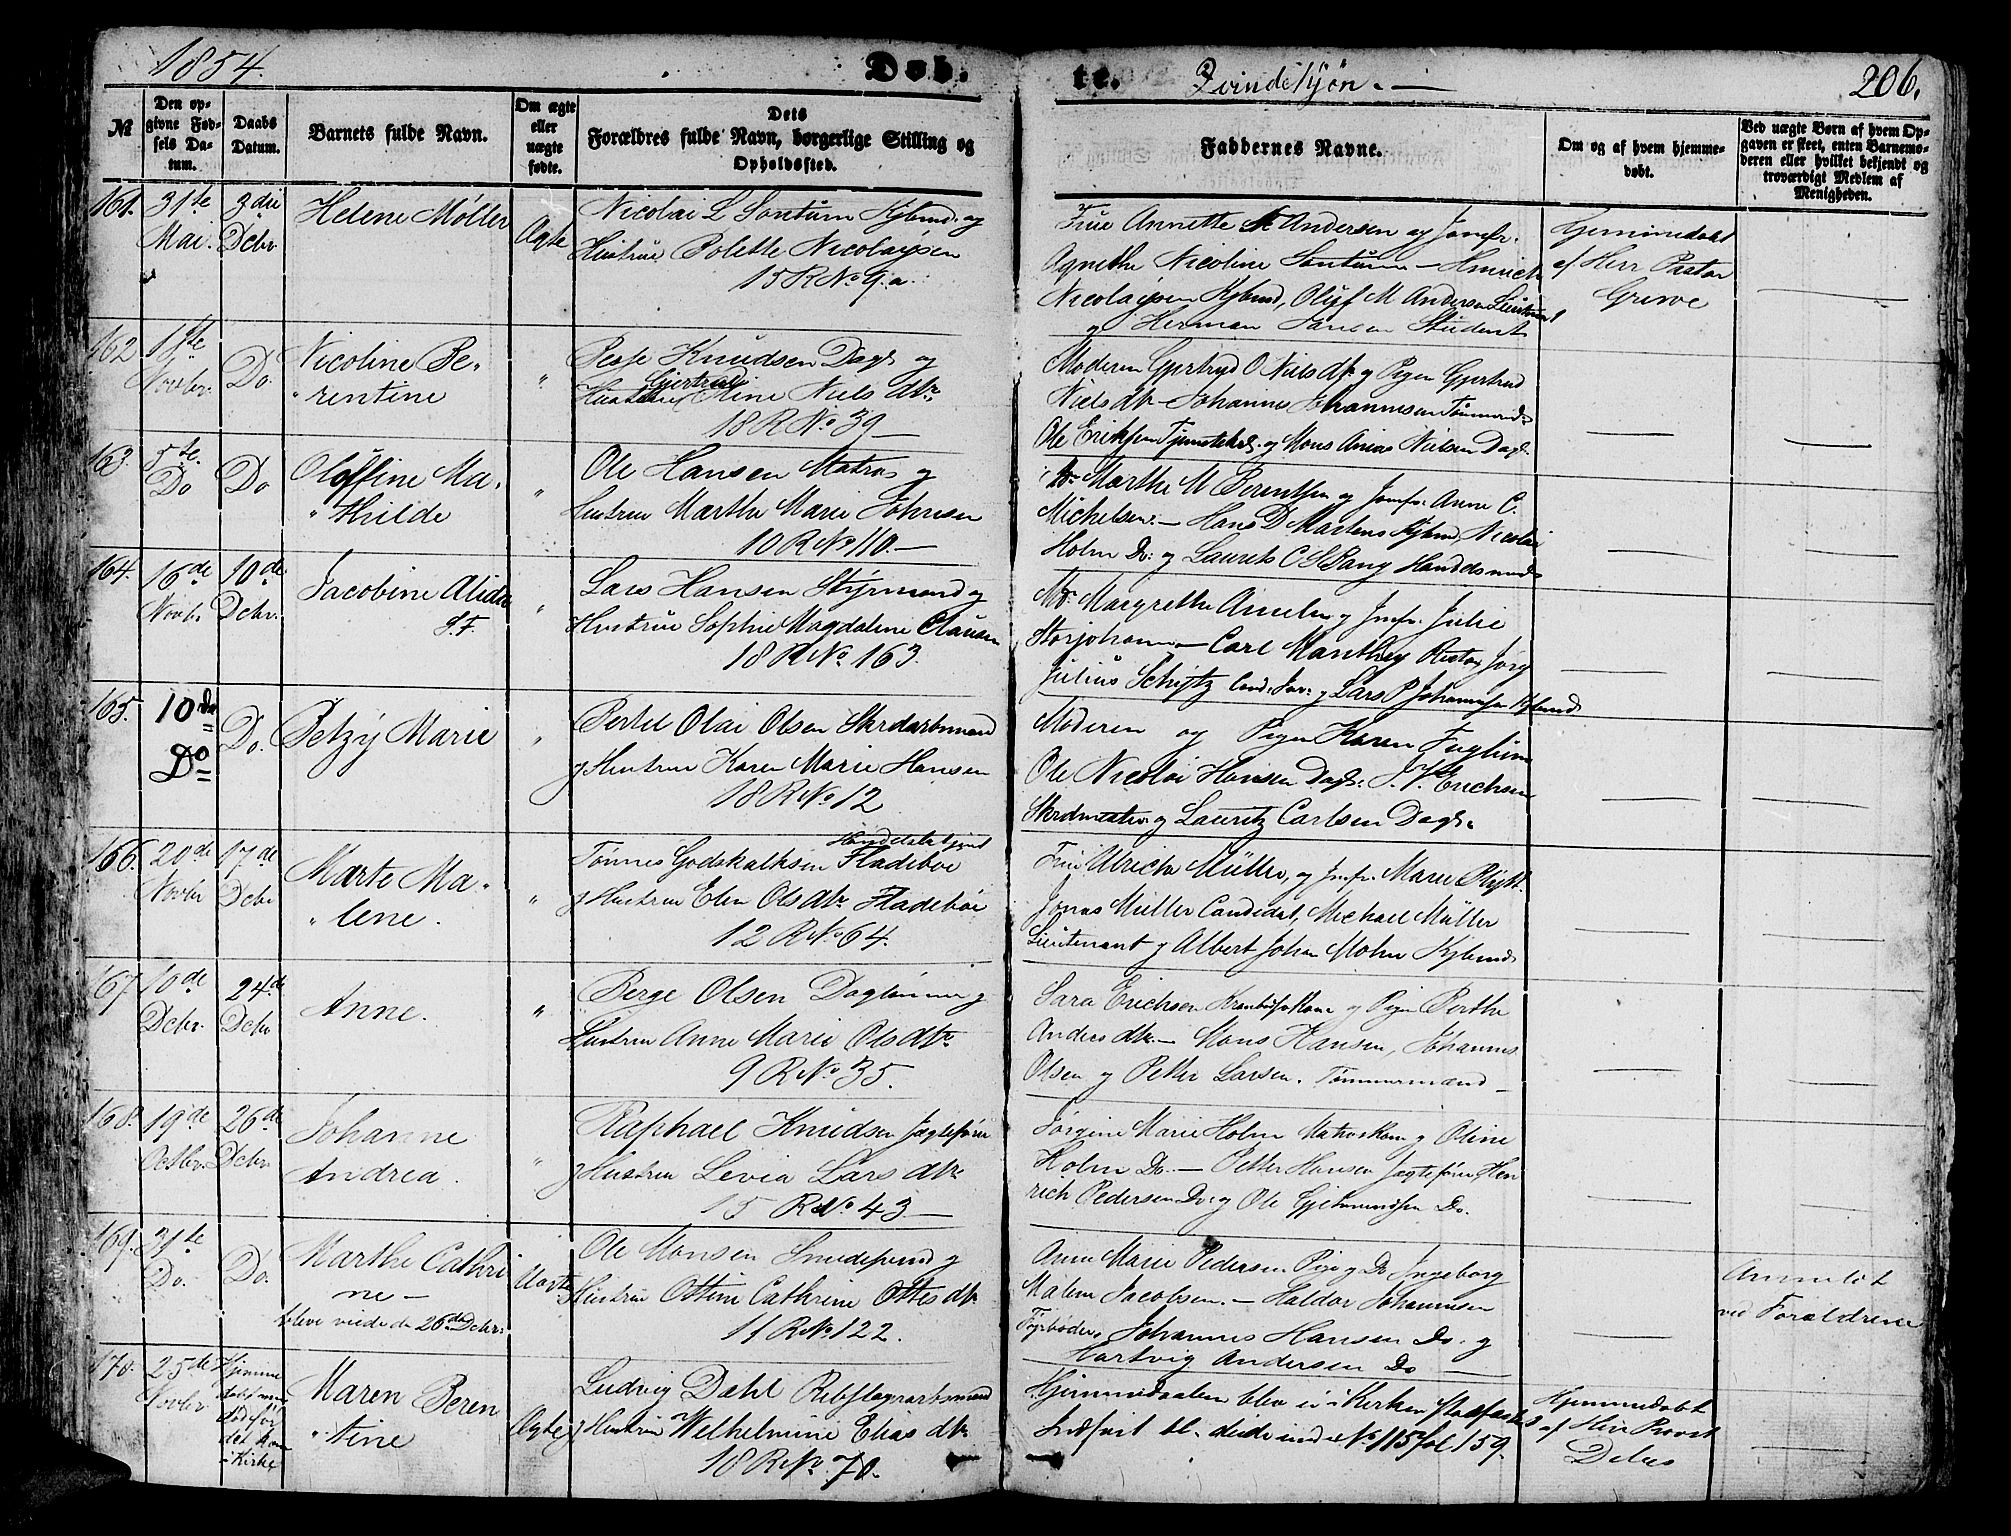 1854.
Døb-
te. Qvindekjøn. —
206.
№
Den opgivne Fødsels Datum.
Daabs Datum.
Barnets fulde Navn.
Om ægte eller uægte fødte.
Dets Forældres fulde Navn, borgerlige Stilling og Opholdssted.
Faddernes Navne.
Om og af hvem hjemmedøbt.
Ved uægte Børn af hvem Opgaven er skeet, enten Barnemoderen eller hvilket bekjendt og troværdigt Medlem af Menigheden.
161. 31te Mai. 3die Dcbr.
Helene Møller
Ægte
Nicolai L Sontum Kjbmd. og
Hustrue Bolette Nicolaysen
15 R No 9.a.
Frue Annette Andersen og Jomfr.
Agnethe Nicoline Sontum — Hinrich
Nicolaysen Kjbmd, Oluf M Andersen Lieutenant
og Herman Jansen Student
Hjemmedøbt
af Herr Pastor
Greve
162 18te Novbr. Do.
Nicoline Berentine
"
Peße Knudsen Dagl. og
Hustrue Gjertrud Oline Niels dtr.
18 R No 39 —
Moderen Gjertrud O Niels dtr og Pigen Gjertrud
Niels dtr — Johannes Johannesen Tømmermd.
Ole Eriksen Tjenestekarl. og Mons Nielsen Dagl.
163. 5te Do Do
Oluffine Mathilde
"
Ole Hansen Matros og
Hustrue Marthe Marie Johnsen
10 R No 110. —
Marthe M Berentsen og Jomfr. Anne C.
Michelsen. — Hans D Martens Kjbmd, Nicolai
Holm Do: og Laurits C G Bang Handelsmand
164. 16de Novbr. 10de Dcbr.
Jacobine Alida
S.F.
"
Lars Hansen Styrmand og
Hustrue Sophie Magdalene Clausen
18 R No 163.
Margrethe Ameln og Jomfr. Julie
Storjohann — Carl Manthey
Julius Schiøtz Cand: Jur: og Lars P Johannesen Kjbmd
165. 10de Do Do.
Betzy Marie
"
Bertel Olai Olsen
og Hustrue Karen Marie Hansen
18 R No 12
Moderen og Pigen Karen Fuglum
Ole Nicolai Hansen Dagl. J. V. Erichsen
og Lauritz Carlsen Dagl.
166. 20de Novbr 17de Dcbr
Marte Malene.
"
Handelsbetjent
Tønnes Godskalksen Fladebøe
og Hustrue Elen Ols dtr Fladebøe
12 R No 64.
Frue Ulricha Müller, og Jomfr. Marie Blytt
Jonas Müller Candidat, Michael Müller
Lieutenant og Albert Johan Mohn Kjbmd
167 10de Dcbr. 24de Dcbr
Anne.
"
Berge Olsen
Hustrue Anne Marie Ols dtr
9 R No 35.
Sara Erichsen og Pigen Berthe
Anders dtr — Mons Hansen, Johannes
Olsen og Petter Larsen. Tømmermænd —
168. 19de Octbr. 26de Dcbr
Johanne
Andrea.
"
Raphael Knudsen Jægtefører
og Hustrue Levia Lars dtr
15 R No 43 —
Jørgine Marie Holm Matroskone og Oline
Holm Do. — Petter Hansen Jægtefører, Henrich
Pedersen Do: og Ole Gjetmundsen Do.
169. 31te Do. Do.
Marthe Cathrine —
bleve viede d 26de Dcbr:
Uægte
Ole Monsen Smedesvend og
Hustrue Ottine Cathrine Ottes dtr
11 R No 122.
Anne Marie Pedersen Pige og Do Ingeborg
Malene Jacobsen. — Haldor Johannesen
Johannes Hansen Do. og
Hartvig Andersen Do
Anmeldt
ved Forældrene
170. 25de Novbr
Hjemmedøbt men
død før
det kom
i Kirke
Maren Berentine
Ægte
Ludvig Dahl Rebslagerarbsmand
og Hustrue Welhelmine Elias dtr
18 R No. 70.
Hjemmedaaben blev ei i Kirken stadfæstet
Indført bl. døde under No 115 fol 159.
Hjemmedøbt
af Herr Provst